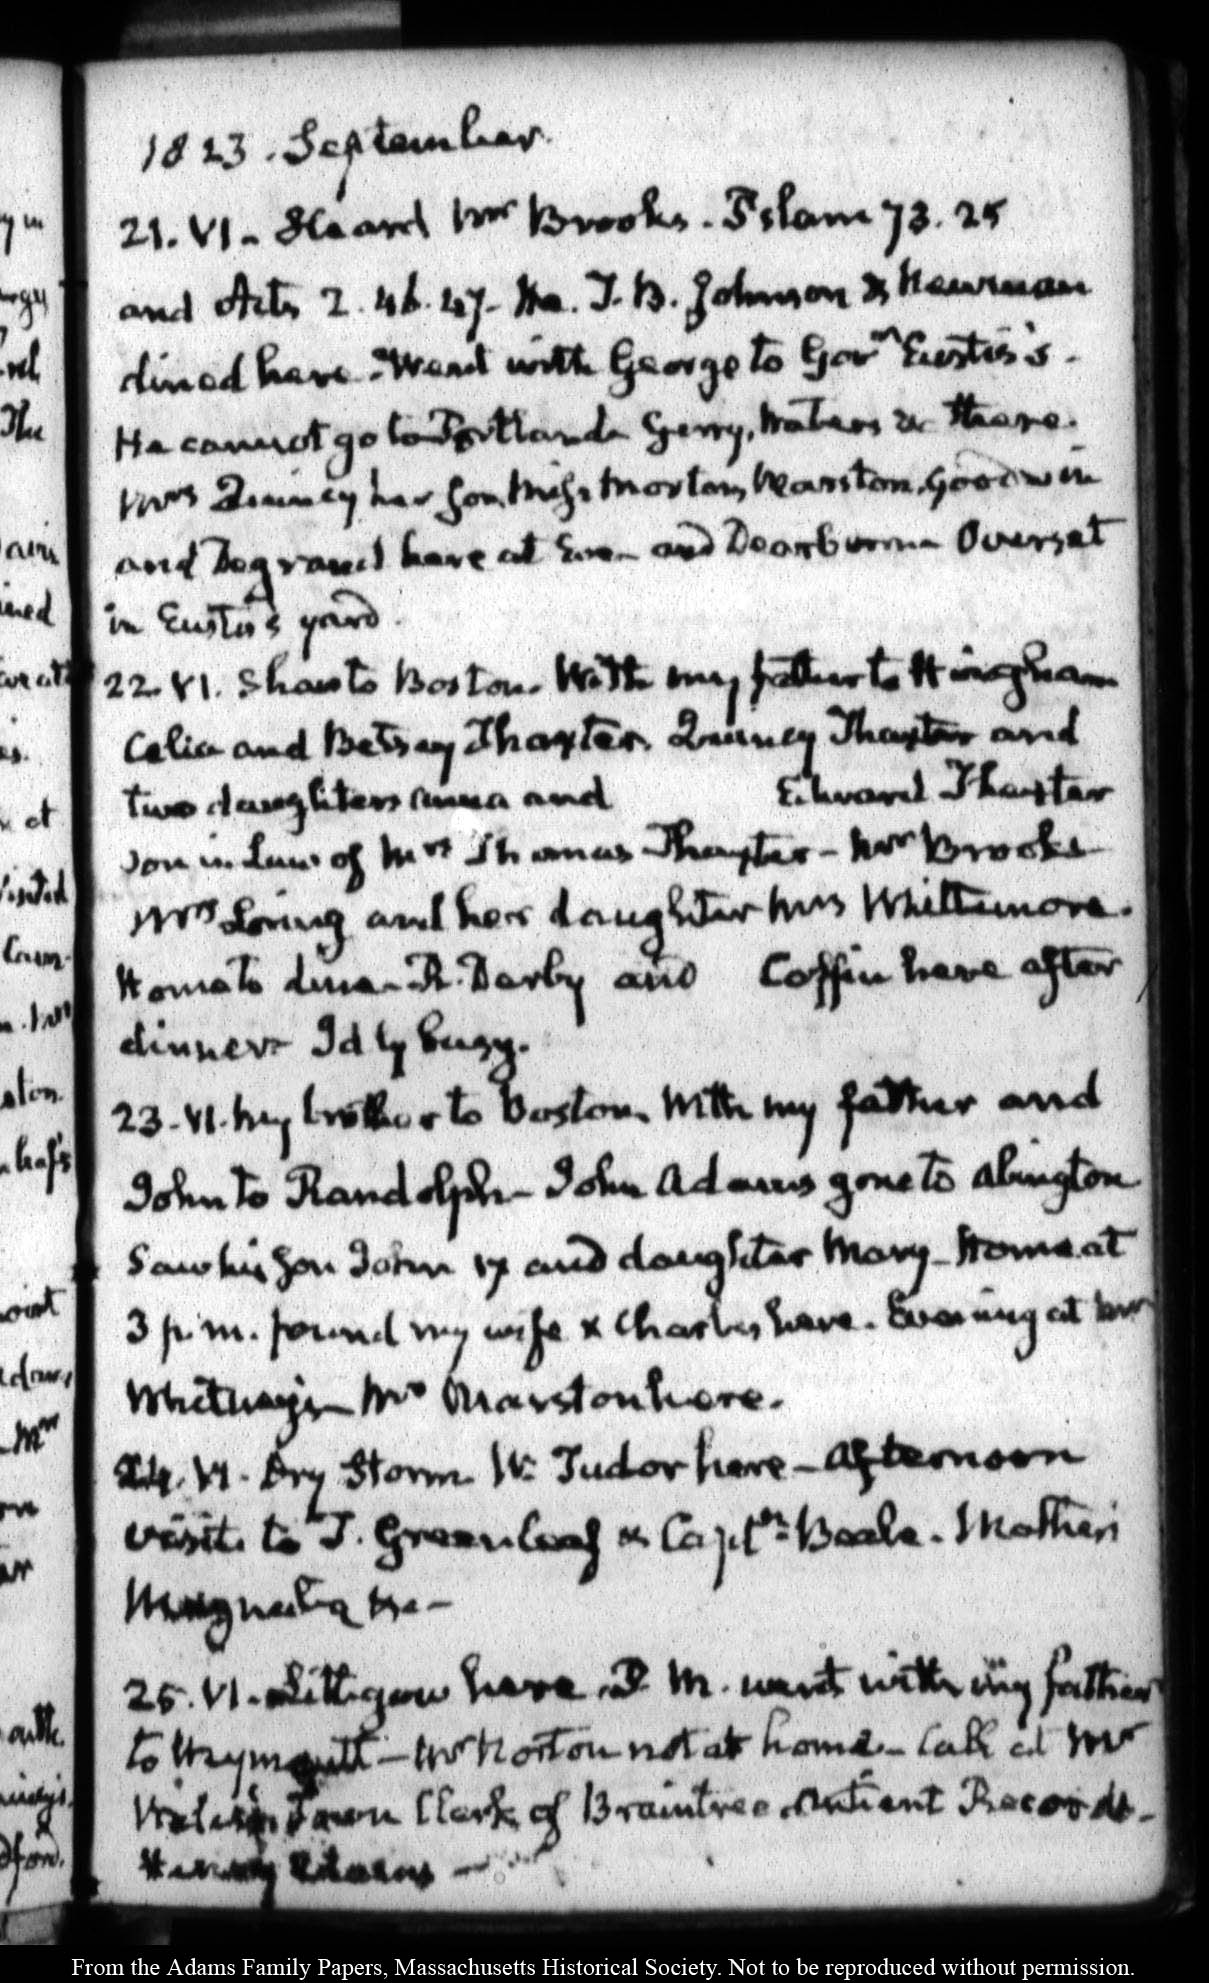 1823. September.
21. VI. Heard Mr Brooks. Pslam 73. 25
and Acts 2. 46. 47. He. T. B. Johnson & Newman
dined here. Went with George to Govr Eustis's.
He cannot go to Portland. Gerry, Waters & there.
Mrs Quincy her Son, Miss Morton, Marston, Goodwin
and Degrand here at Eve. and Dearborn Overset
in Eustis's yard.
22. VI. Shaw to Boston. With my father to Hingham
Celia and Betsey Thaxter. Quincy Thaxter and
two daughters Anna and Edward Thaxter
Son in Law of Mrs Thomas Thaxter - Mr Brooks
Mrs Loring and her daughter Mrs Whittemore.
Home to dine. R. Derby and Coffin here after
dinner. Idly busy.
23. VI. My brother to Boston. With my father and
John to Randolph - John Adams gone to Abington
Saw his Son John 17 and daughter Mary - Home at
3 p.m. found my wife & Charles here. Evening at Mr
Whitney's - Mrs Marston here.
24. VI. Dry Storm. W. Tudor here - Afternoon
visits to T. Greenleaf & Captn Beale. Mather's
Magnalia
25. VI. Lithgow here. P. M. went with my father
to Weymouth - Mr Norton not at home - Call at Mr
Town Clerk of Braintree. Antient Records -
Henry Adams -
From the Adams Family Papers, Massachusetts Historical Society. Not to be reproduced without permission.